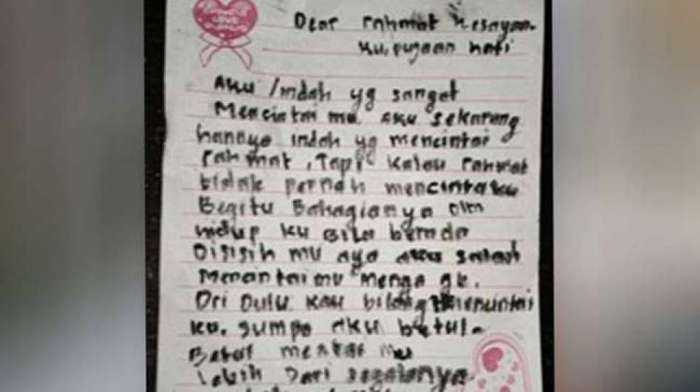 Dear rahmat kesayan.
ku. pujaan hati
Aku / indah yg sangat
Mencintai mu. aku sekarang
hanaya indah yg mencintai
rahmat, Tapi kalau rahmat
tidak pernah mencintaku
Begitu Bahagianya dlm
hidup ku Bila berada
Disisih mu aya aku salah
Menantaimu menga gk.
Dri Dulu kau bilang mencintai
ku. sumpa aku betul-
Betul
Lebih Dari segalanya